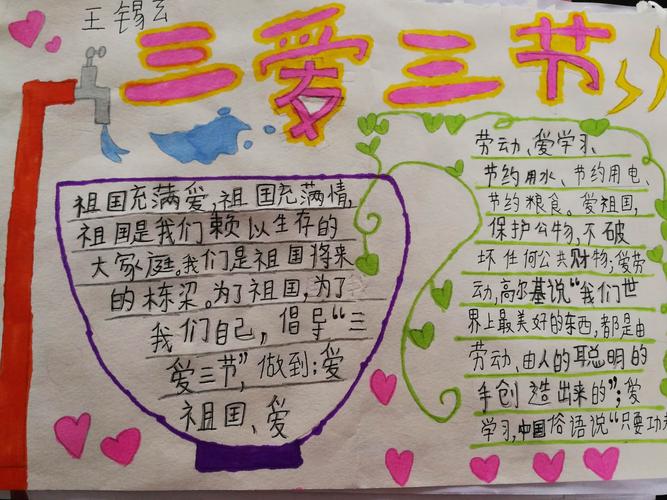 王锡玄
三爱三节
祖国充满爱,祖国充满情,
祖国是我们赖以生存的
大家庭。我们是祖国将来
的栋梁。为了祖国,为了
我们自己,倡导“三
爱三节”,做到:爱
祖国、爱
劳动、爱学习、
节约用水、节约用电、
节约粮食。爱祖国,
保护公物,不破
坏任何公共财物;爱劳
动,高尔基说“我们世
界上最美好的东西,都是由
劳动、由人的聪明的
手创造出来的”;爱
学习,中国俗语说“只要功夫